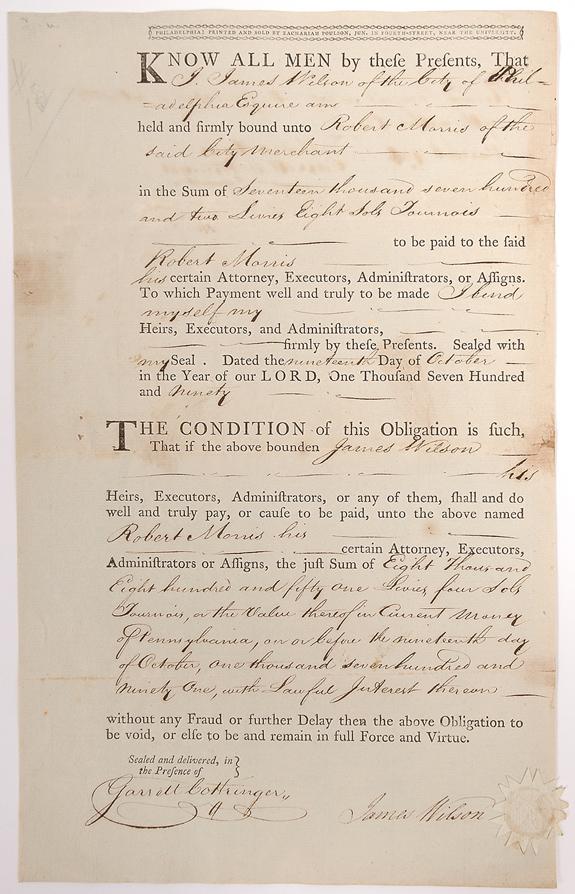 PHILADELPHIA: PRINTED AND SOLD BY ZACHARIAH POULSON, JUN. IN FOURTH-STREET, NEAR THE UNIVERSITY.
KNOW ALL MEN by theſe Preſents, That
I James Wilson of the City of Phil-
=adelphia Esquire am
held and firmly bound unto Robert Morris of the
said City Merchant
in the Sum of Seventeen thousand seven hundred
and two Livres Eight Sols Tournois
to be paid to the ſaid
Robert Morris
his certain Attorney, Executors, Adminiſtrators, or Aſſigns.
To which Payment well and truly to be made I bind
myself my
Heirs, Executors, and Adminiſtrators,
firmly by theſe Preſents. Sealed with
my Seal . Dated the nineteenth Day of October
in the Year of our LORD, One Thouſand Seven Hundred
and Ninety
THE CONDITION of this Obligation is ſuch,
That if the above bounden James Wilson
his
Heirs, Executors, Adminiſtrators, or any of them, ſhall and do
well and truly pay, or cauſe to be paid, unto the above named
Robert Morris his
certain Attorney, Executors,
Adminiſtrators or Aſſigns, the juſt Sum of Eight Thousand
Eight hundred and fifty one Livres four Sols
Tournois, or the Value thereof in Current Money
of Pennsylvania, on or before the nineteenth day
of October, one thousand seven hundred and
Ninety One, with Lawful Interest thereon
without any Fraud or further Delay then the above Obligation to
be void, or elſe to be and remain in full Force and Virtue.
Sealed and delivered, in
the Preſence of
Garrett Cottringer
James Wilson